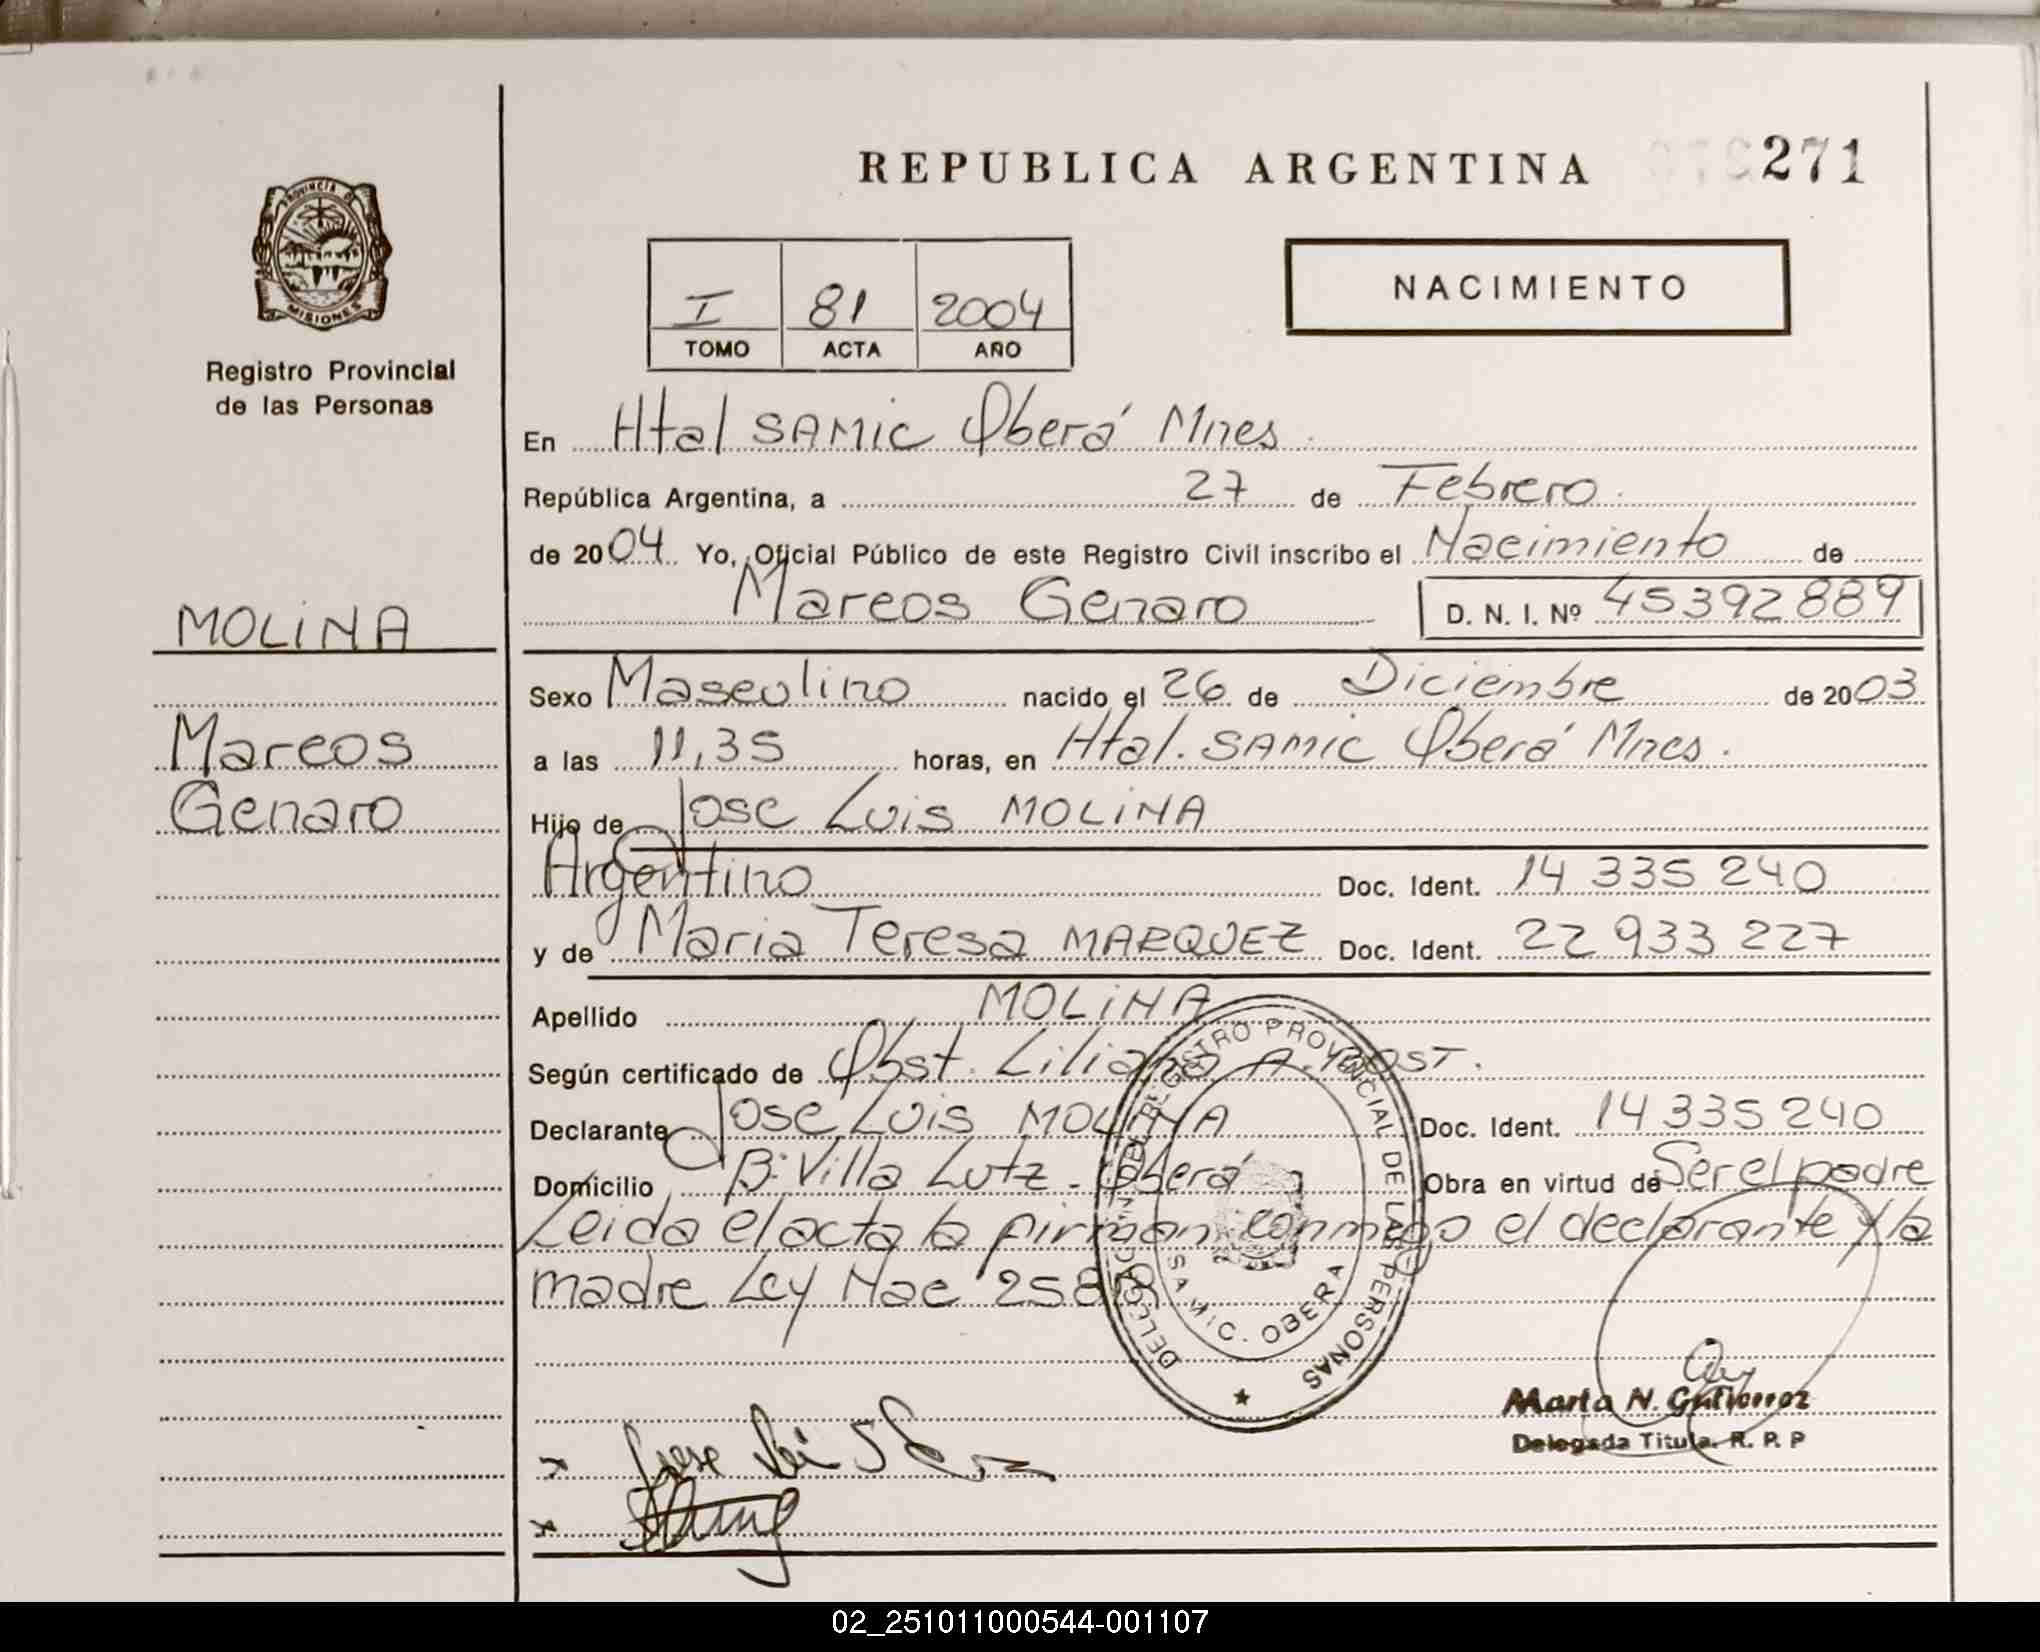 REPUBLICA ARGENTINA
271
PROVINCIA DE
MISIONES
Registro Provincial
de las Personas
I 81 2004
TOMO ACTA AÑO
NACIMIENTO
En Htal SAMIC Oberá Mnes.
República Argentina, a 27 de Febrero.
de 2004. Yo, Oficial Público de este Registro Civil inscribo el Nacimiento de
Marcos Genaro D. N. I. Nº 45392889
MOLINA
Marcos
Genaro
Sexo Masculino nacido el 26 de Diciembre de 2003
a las 11,35 horas, en Htal. SAMIC Oberá Mnes.
Hijo de Jose Luis MOLINA
Argentino Doc. Ident. 14 335 240
y de Maria Teresa MARQUEZ Doc. Ident. 22 933 227
Apellido MOLINA
Según certificado de Obst. Liliana A.
Declarante Jose Luis MOLINA Doc. Ident. 14 335 240
Domicilio B: Villa Lutz - Oberá Obra en virtud de Ser el padre
Leida el acta la firman conmigo el declarante y la
madre Ley Nac
DELEGACION DEL REGISTRO PROVINCIAL DE LAS PERSONAS
SAMIC. OBERA
Marta N. Gutierrez
Delegada Titular R. P. P
02_251011000544-001107